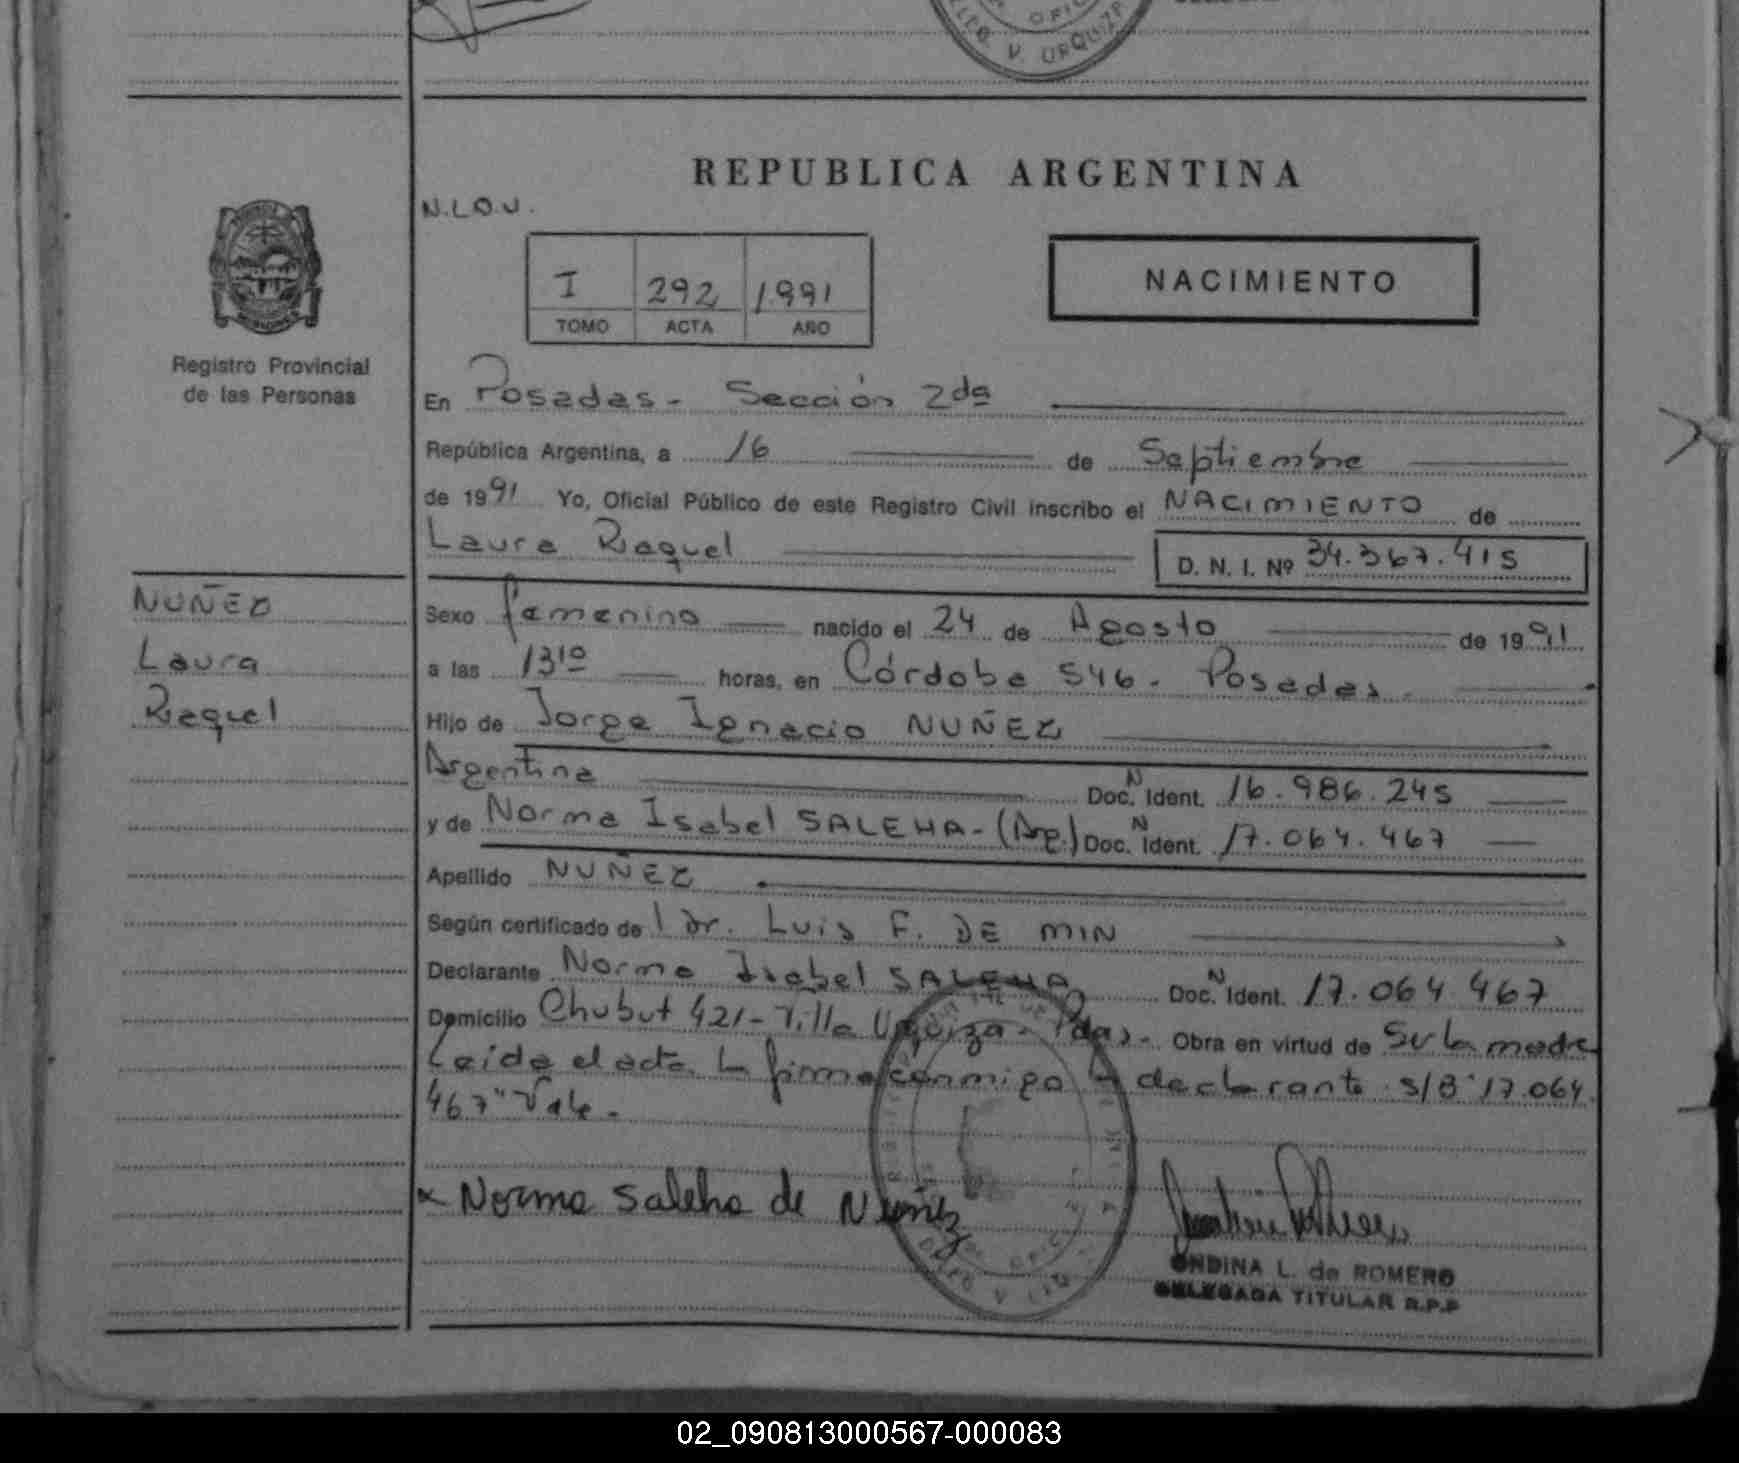 OFIC
V. URQUIZA
REPUBLICA ARGENTINA
N.L.O.U.
I 292 1991
TOMO ACTA AÑO
NACIMIENTO
Registro Provincial
de las Personas
En Posadas - Sección 2da
República Argentina, a 16 de Septiembre
de 1991 Yo, Oficial Público de este Registro Civil inscribo el NACIMIENTO de
Laura Raquel D. N. I. Nº 34.367.415
NUÑEZ
Laura
Raquel
Sexo femenino nacido el 24 de Agosto de 1991
a las 1310 horas, en Córdoba 546 - Posadas -
Hijo de Jorge Ignacio NUÑEZ
Argentina Doc. N Ident. 16.986.245
y de Norma Isabel SALEHA - (Arg.) Doc. N Ident. 17.064.467
Apellido NUÑEZ
Según certificado del Dr. Luis F. DE MIN
Declarante Norma Isabel SALEHA Doc. N Ident. 17.064.467
Domicilio Chubut 421 - Villa Urquiza - Pdas. - Obra en virtud de Ser la madre
Leída el acta la firma conmigo la declarante s/B "17.064.
467" Vale -
Norma Saleha de Nuñez
ONDINA L. de ROMERO
DELEGADA TITULAR R.P.P
02_090813000567-000083